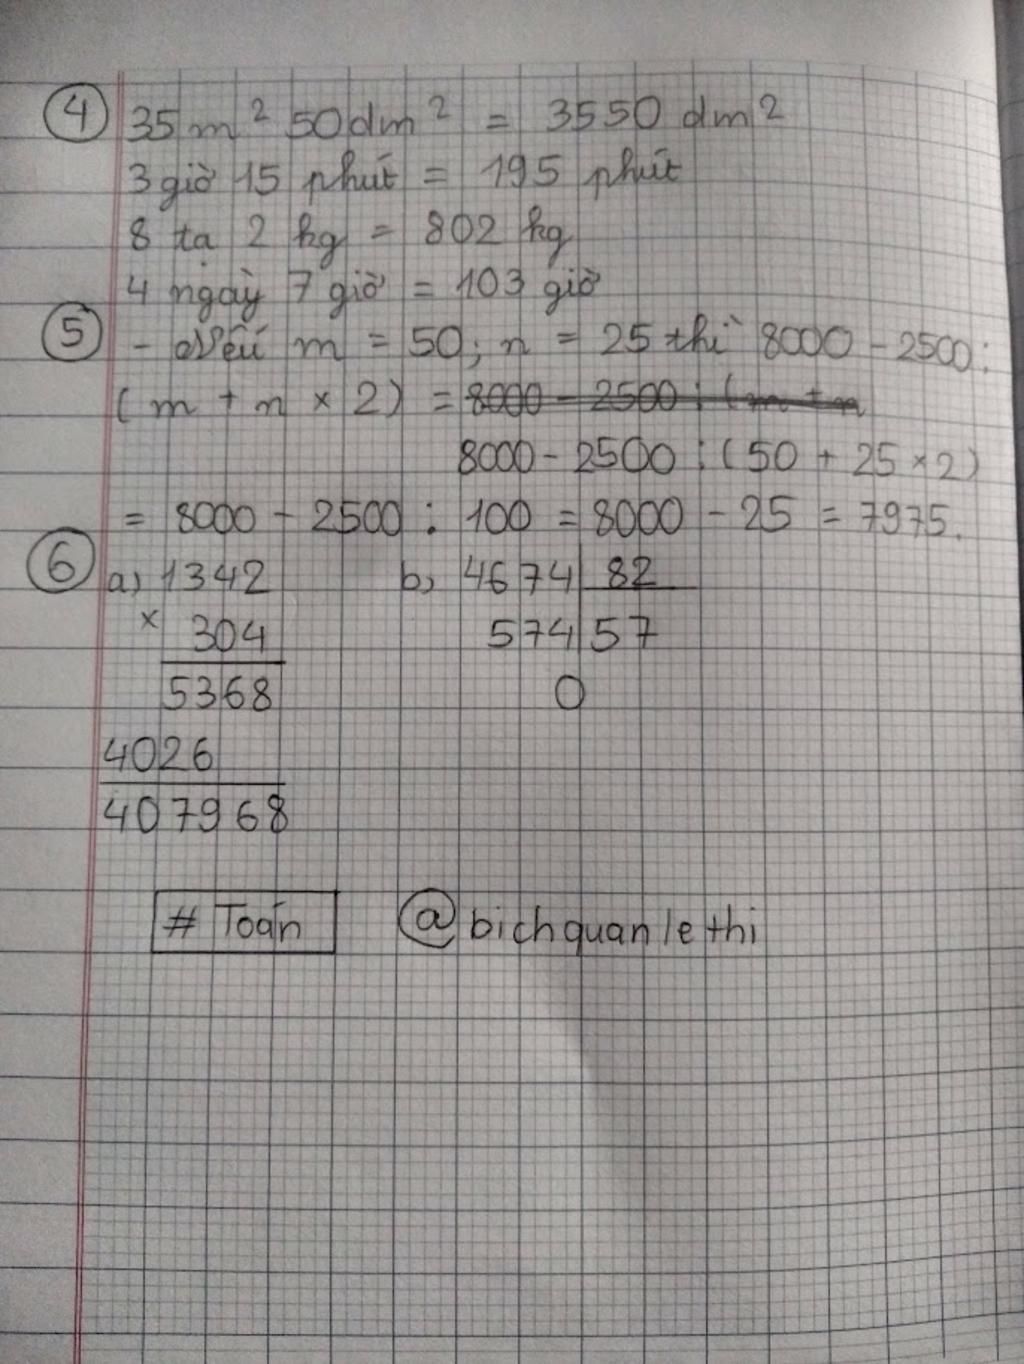 4 35 m² 50 dm² = 3550 dm²
3 giờ 15 phút = 195 phút
8 tạ 2 kg = 802 kg
4 ngày 7 giờ = 103 giờ
5 - Nếu m = 50; n = 25 thì 8000 - 2500 :
(m + n × 2) = 8000 - 2500 : (m + n
8000 - 2500 : (50 + 25 × 2)
= 8000 - 2500 : 100 = 8000 - 25 = 7975.
6 a) 1342 b) 4674 82
× 304 574 57
5368 0
4026
407968
# Toán @bichquanlethi